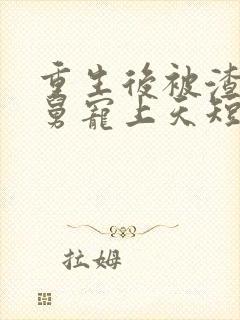 重生後被渣
舅寵上天短
拉姆